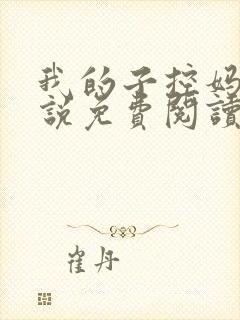 我的子控妈
說免費閱讀
崔丹